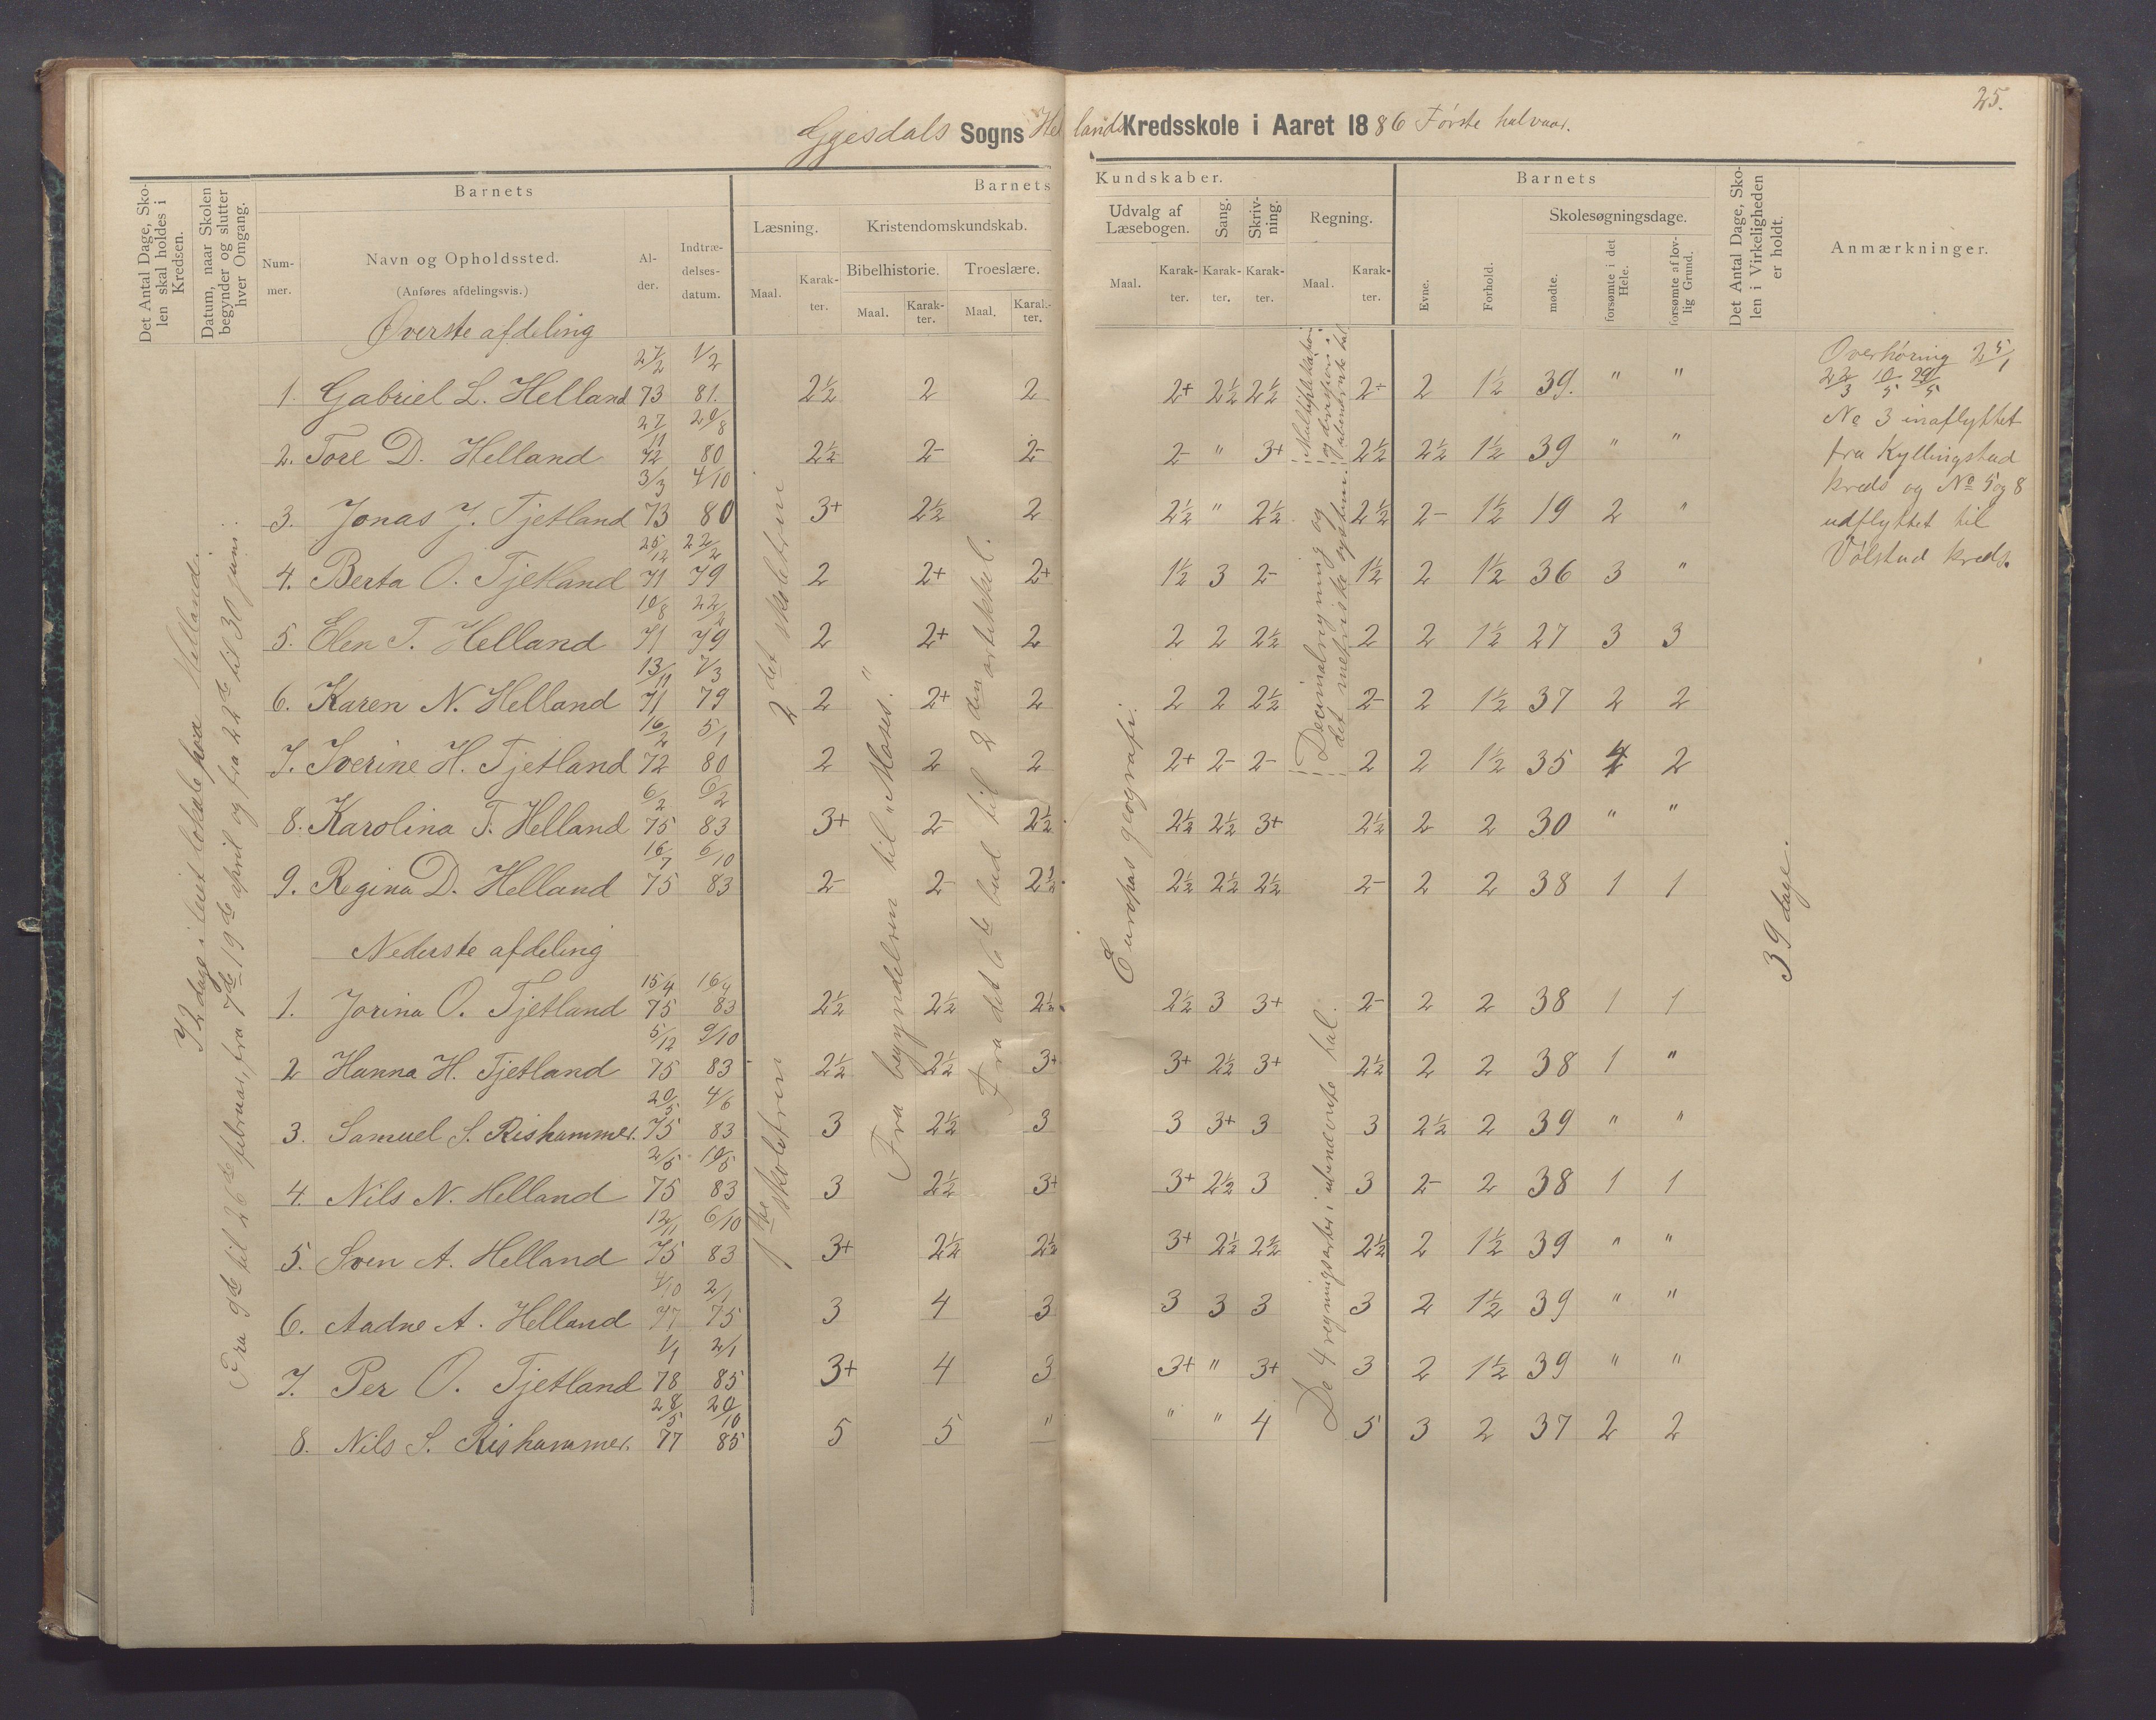 25.
Gjesdals Sogns Hellands Kredsskole i Aaret 1886 Første halvaar.
Det Antal Dage, Skolen skal holdes i Kredsen.
Datum, naar Skolen begynder og slutter hver Omgang.
Barnets
Barnets Kundskaber.
Barnets
Det Antal Dage, Skolen i Virkeligheden er holdt.
Anmærkninger.
Nummer.
Navn og Opholdssted.
(Anføres afdelingsvis.)
Alder.
Indtrædelsesdatum.
Læsning.
Kristendomskundskab.
Bibelhistorie.
Troeslære.
Udvalg af Læsebogen.
Sang.
Skrivning.
Regning.
Evne.
Forhold.
Skolesøgningsdage.
mødte.
forsømte i det Hele.
forsømte af lovlig Grund.
Maal. Karakter. Maal. Karakter. Maal. Karakter. Maal. Karakter. Karakter. Karakter. Maal. Karakter.
72 dage i leiet lokale paa Helland.
Fra 9de til 26de februar, fra 7de - 19de april og fra 22de til 30 juni.
2det skoletrin
1ste skoletrin
Fra begyndelsen til „Moses."
Fra det 6te bud til 2den artikkel.
Europas geografi.
Multiplikation og division i ubenævnte tal
Decimalregning og det metriske system.
De 4 regningsarter i ubenævnte tal.
39 dage.
Øverste afdeling
1. Gabriel L. Helland 27/2 73 1/2 81. 2½ 2 2 2+ 2½ 2½ 2- 2 1½ 39. " "
2. Tore D. Helland 27/11 72 20/8 80 2½ 2- 2- 2- " 3+ 2½ 2½ 1½ 39 " "
3. Jonas J. Tjetland 3/3 73 4/10 80 3+ 2½ 2 2½ " 2½ 2½ 2- 1½ 19 2 "
4. Berta O. Tjetland 25/12 71 22/2 79 2 2+ 2+ 1½ 3 2- 1½ 2 1½ 36 3 "
5. Elen T. Helland 10/8 71 22/2 79 2 2+ 2 2 2 2½ 2 2 1½ 27 3 3
6. Karen N. Helland 13/11 71 7/3 79 2 2+ 2 2 2 2½ 2- 2 1½ 37 2 2
7. Iverine H. Tjetland 16/2 72 5/1 80 2 2 2 2+ 2- 2- 2 2 1½ 35 4 2
8. Karolina T. Helland 6/2 75 6/2 83 3+ 2- 2½ 2½ 2½ 3+ 2½ 2 2 30 " "
9. Regina D. Helland 16/7 75 6/10 83 2- 2- 2½ 2½ 2½ 2½ 2- 2 2 38 1 1
Nederste afdeling
1. Jorina O. Tjetland 15/4 75 16/4 83 2½ 2½ 2½ 2½ 3 3+ 2- 2 2 38 1 1
2 Hanna H. Tjetland 5/12 75 9/10 83 2½ 2½ 3+ 3+ 2½ 3+ 2½ 2 2 38 1 "
3. Samuel S. Rishammer. 20/5 75 4/6 83 3 2½ 3 3 3+ 3 3 2½ 2 39 " "
4. Nils N. Helland 2/5 75 10/5 83 3 2½ 3+ 3+ 2½ 3 3 2- 2 38 1 1
5. Sven A. Helland 12/11 75 6/10 83 3+ 2½ 2½ 3+ 2½ 2½ 2½ 2 1½ 39 " "
6. Aadne A. Helland 4/10 77 2/1 75 3 4 3 3 3 3 3 2 1½ 39 " "
7. Per O. Tjetland 1/1 78 2/1 85 3+ 4 3 3+ " 3+ 3 2 1½ 39 " "
8. Nils S. Rishammer. 28/5 77 20/10 85 5 5 " " " 4 5 3 2 37 2 2
Overhøring 25/1
22/3 10/5 29/5
No 3 indflyttet
fra Kyllingstad
kreds og No 5 og 8
udflyttet til
Vølstad kreds.